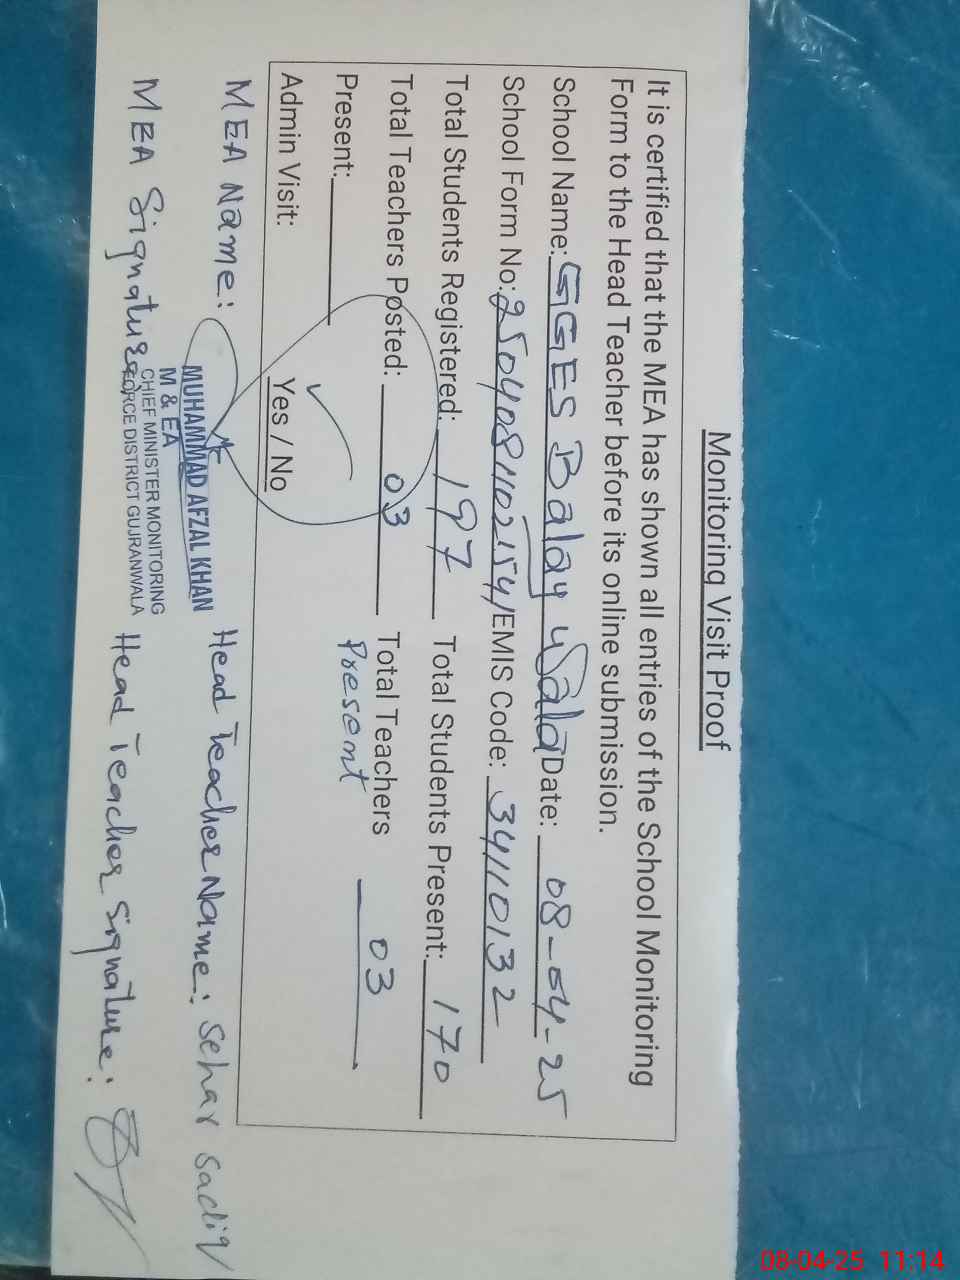 Monitoring Visit Proof
It is certified that the MEA has shown all entries of the School Monitoring
Form to the Head Teacher before its online submission.
School Name: GGES Balay Wala Date: 08-04-25
School Form No: 2504081102154/EMIS Code: 34110132
Total Students Registered: 197 Total Students Present: 170
Total Teachers Posted: 03 Total Teachers 03
Present: Present
Admin Visit: Yes / No
MEA Name: MUHAMMAD AFZAL KHAN Head Teacher Name: Sehar Sadiq
M & EA
CHIEF MINISTER MONITORING
FORCE DISTRICT GUJRANWALA
MEA Signature Head Teacher Signature:
08-04-25 11:14